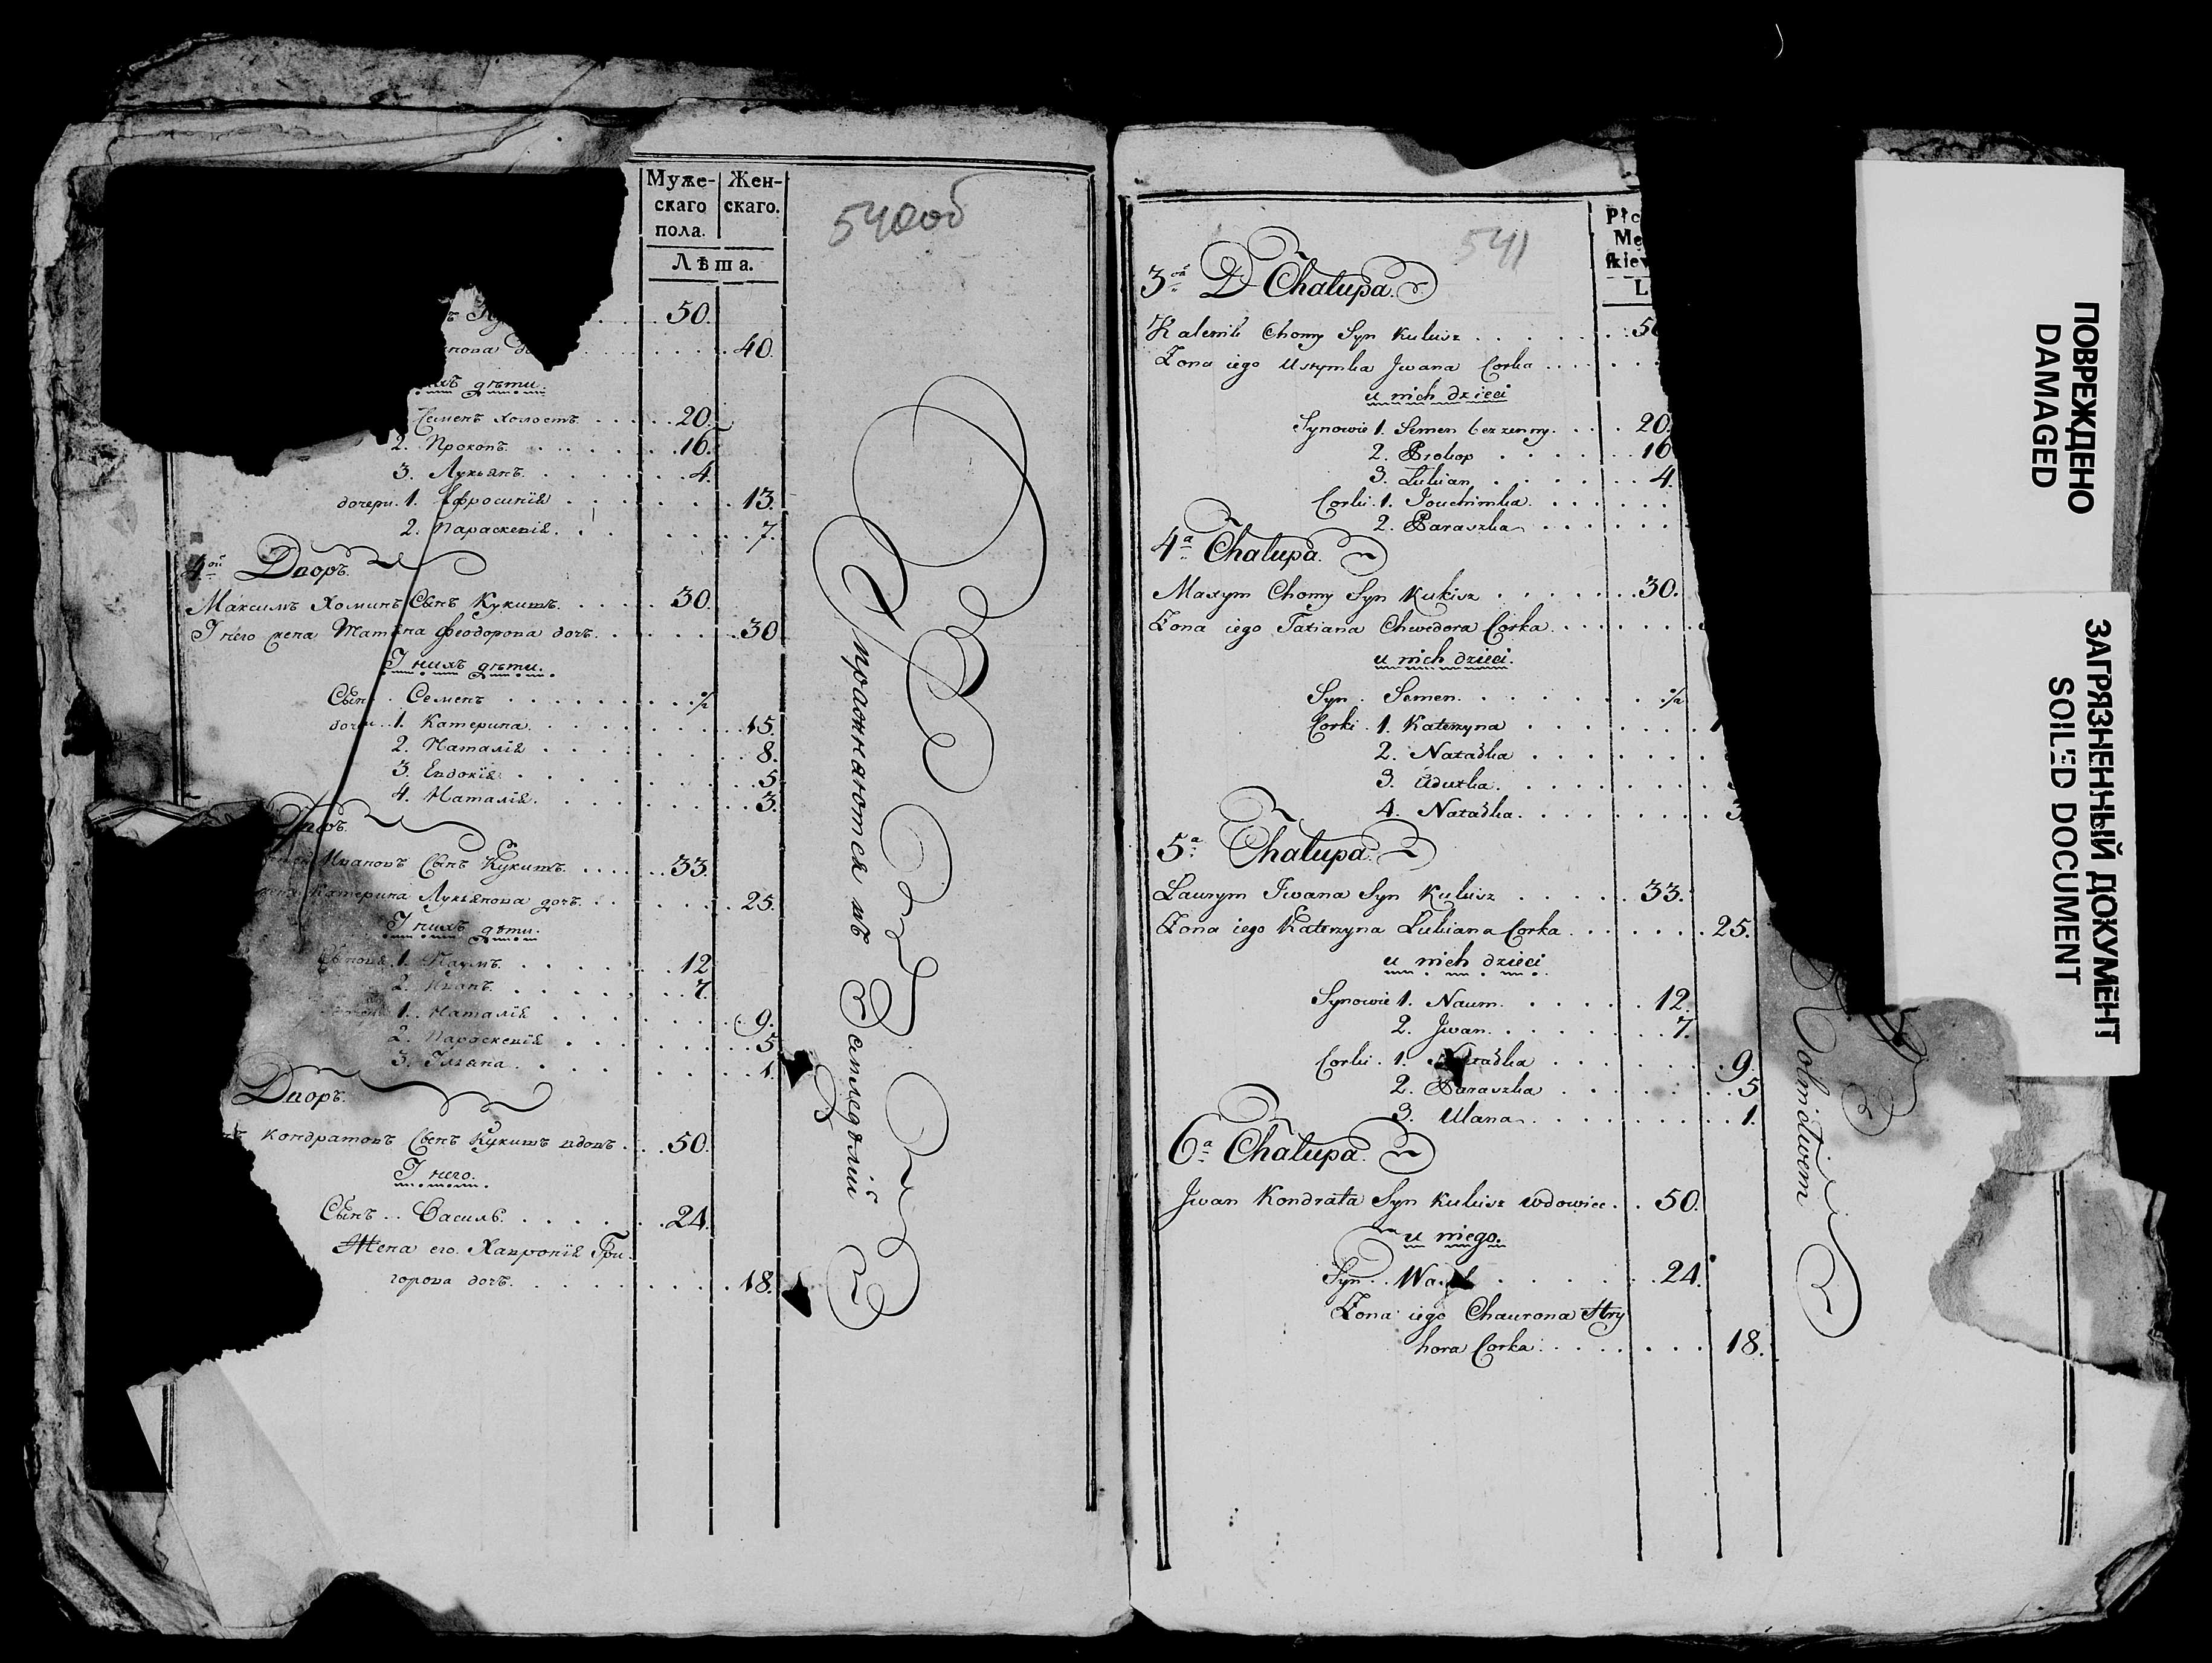 Муже-
скаго
пола.
Жен-
скаго.
Лѣта.
540об
50.
40.
нихъ дѣти.
Семенъ холостъ 20.
2. Прокопъ. 16.
3. Лукьянъ. 4.
дочери. 1. Ефросинія 13.
2. Параскевія. 7.
4ой Дворъ.
Максимъ Хоминъ Сынъ Кукишъ. 30.
У него жена Татяна Феодорова дочь. 30
У нихъ дѣти.
Сынъ. Семенъ ½
дочери. 1. Катерина. 15.
2. Наталія 8.
3. Евдокія. 5
4. Наталія. 3.
Дворъ.
Ивановъ Сынъ Кукишъ. 33.
жена Катерина Лукьянова дочь. 25.
У нихъ дѣти.
Сыновя. 1. Наумъ. 12
2. Иванъ. 7.
1. Наталія 9.
2. Параскевія 5
3. Уліана. 1.
Дворъ.
Кондратовъ Сынъ Кукишъ вдовъ. 50.
У него.
Сынъ. Василь. 24.
Жена его. Хавронія Гри-
горова дочь. 18.
Упражняются въ Земледѣліи
541
3ой D Chałupa.
Chomy Syn Kukisz
Żona iego Ustymka Jwana Corka
u nich dzieci
Synowie 1. Semen bezzenny. 20.
2. Prokop 16
3. Lukian 4.
Corki. 1. Jouchimka.
2. Paraszka
4a Chałupa.
Maxym Chomy Syn Kukisz 30.
Żona iego Tatiana Chwedora Corka.
u nich dzieci.
Syn. Semen. ½
Corki. 1. Katerzyna
2. Natałka
3. Adutka.
4. Natałka. 3
5a Chałupa.
Laurym Jwana Syn Kukisz 33.
Żona iego Katerzyna Lukiana Corka 25.
u nich dzieci
Synowie 1. Naum. 12.
2. Jwan. 7.
Corki. 1. Natałka 9.
2. Paraszka 5
3. Ulana. 1.
6a Chałupa.
Jwan Kondrata Syn Kukisz wdowiec. 50.
u niego.
Syn. 24.
Żona iego Chaurona Hry
hora Corka. 18.
Rolnictwem
ПОВРЕЖДЕНО
DAMAGED
ЗАГРЯЗНЕННЫЙ ДОКУМЕНТ
SOILED DOCUMENT